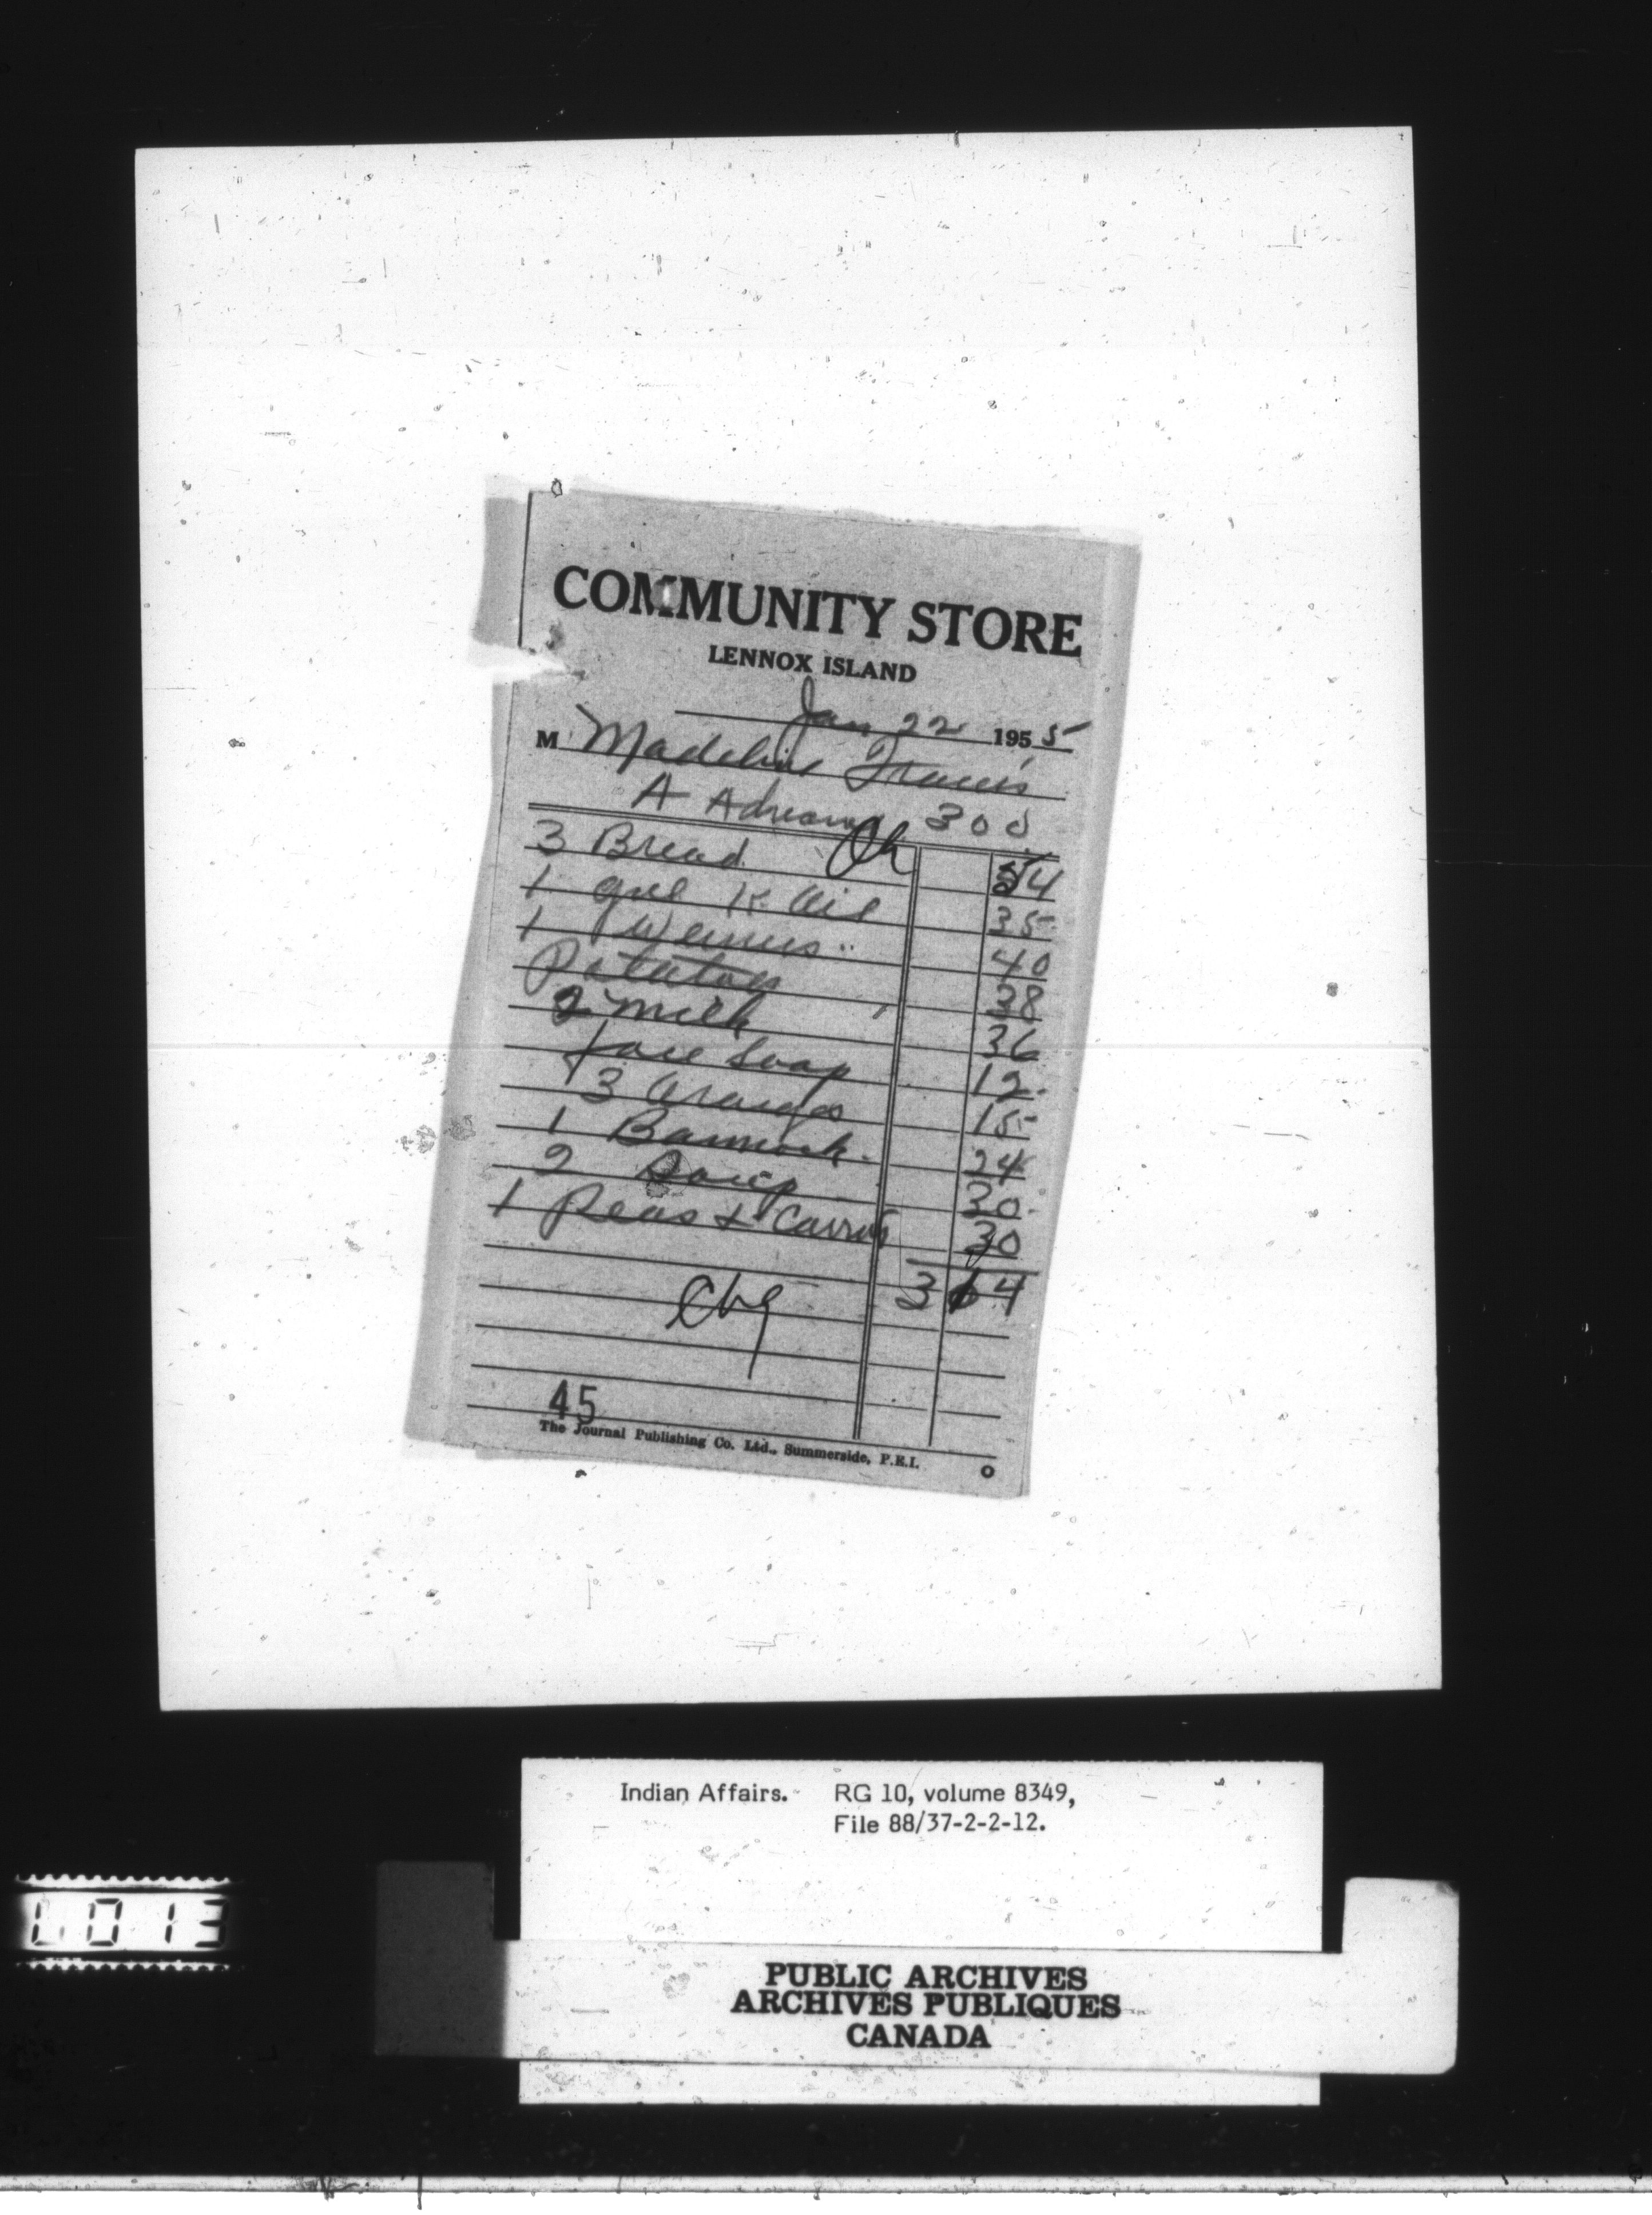 COMMUNITY STORE
LENNOX ISLAND
Jan 22 1955
M Madeline Francis
A Adream 300
Ch
3 Bread 54
1 gal K Oil 35
1 Weiners 40
Potatoes 38
2 milk 36
face Soap 12
3 oranges 15
1 Bannock 24
2 Soup 30
1 Peas & Carrots 30
3 64
Chg
45
The Journal Publishing Co. Ltd., Summerside, P.E.I.
Indian Affairs. RG 10, volume 8349,
File 88/37-2-2-12.
1013
PUBLIC ARCHIVES
ARCHIVES PUBLIQUES
CANADA